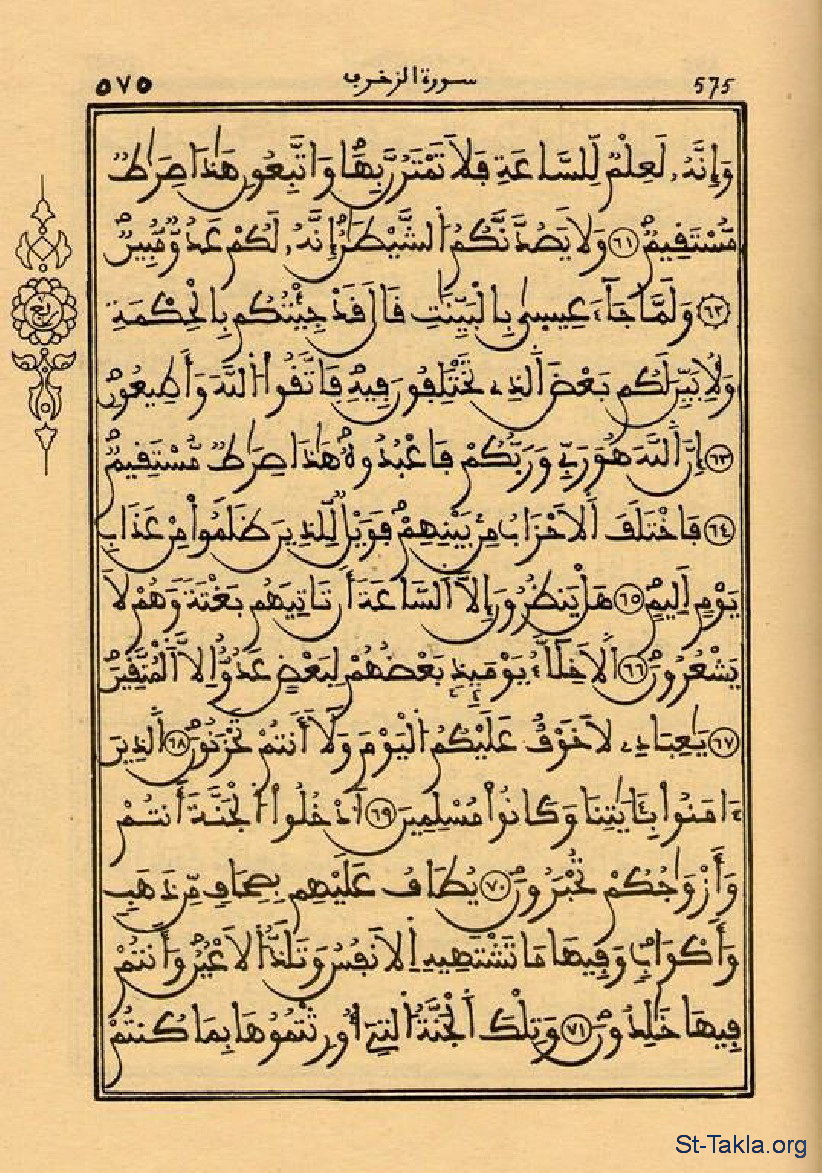 ٥٧٥ سورة الزخرف 575
وَإِنَّهُۥ لَعِلْمٌ لِّلسَّاعَةِ فَلَا تَمْتَرُنَّ بِهَا وَاتَّبِعُونِ هَٰذَا صِرَٰطٌ
مُّسْتَقِيمٌ ٦١ وَلَا يَصُدَّنَّكُمُ الشَّيْطَٰنُ إِنَّهُۥ لَكُمْ عَدُوٌّ مُّبِينٌ
٦٢ وَلَمَّا جَآءَ عِيسىٰ بِالْبَيِّنَٰتِ قَالَ قَدْ جِئْتُكُم بِالْحِكْمَةِ
وَلِأُبَيِّنَ لَكُم بَعْضَ ٱلَّذِے تَخْتَلِفُونَ فِيهِ فَاتَّقُوا۟ اللَّهَ وَأَطِيعُونِ
٦٣ إِنَّ اللَّهَ هُوَ رَبِّي وَرَبُّكُمْ فَاعْبُدُوهُ هَٰذَا صِرَٰطٌ مُّسْتَقِيمٌ
٦٤ فَاخْتَلَفَ ٱلْأَحْزَابُ مِنۢ بَيْنِهِمْ فَوَيْلٌ لِّلَّذِينَ ظَلَمُوا۟ مِنْ عَذَابِ
يَوْمٍ أَلِيمٍ ٦٥ هَلْ يَنظُرُونَ إِلَّا ٱلسَّاعَةَ أَن تَاتِيَهُم بَغْتَةً وَهُمْ لَا
يَشْعُرُونَ ٦٦ ٱلْأَخِلَّآءُ يَوْمَئِذٍۭ بَعْضُهُمْ لِبَعْضٍ عَدُوٌّ إِلَّا ٱلْمُتَّقِينَ
٦٧ يَٰعِبَادِے لَا خَوْفٌ عَلَيْكُمُ ٱلْيَوْمَ وَلَآ أَنتُمْ تَحْزَنُونَ ٦٨ ٱلَّذِينَ
ءَامَنُوا۟ بِـَٔايَٰتِنَا وَكَانُوا۟ مُسْلِمِينَ ٦٩ ٱدْخُلُوا۟ ٱلْجَنَّةَ أَنتُمْ
وَأَزْوَٰجُكُمْ تُحْبَرُونَ ٧٠ يُطَافُ عَلَيْهِم بِصِحَافٍ مِّن ذَهَبٍ
وَأَكْوَابٍ وَفِيهَا مَا تَشْتَهِيهِ ٱلْأَنفُسُ وَتَلَذُّ ٱلْأَعْيُنُ وَأَنتُمْ
فِيهَا خَٰلِدُونَ ٧١ وَتِلْكَ ٱلْجَنَّةُ ٱلتِےٓ أُورِثْتُمُوهَا بِمَا كُنتُمْ
St-Takla.org